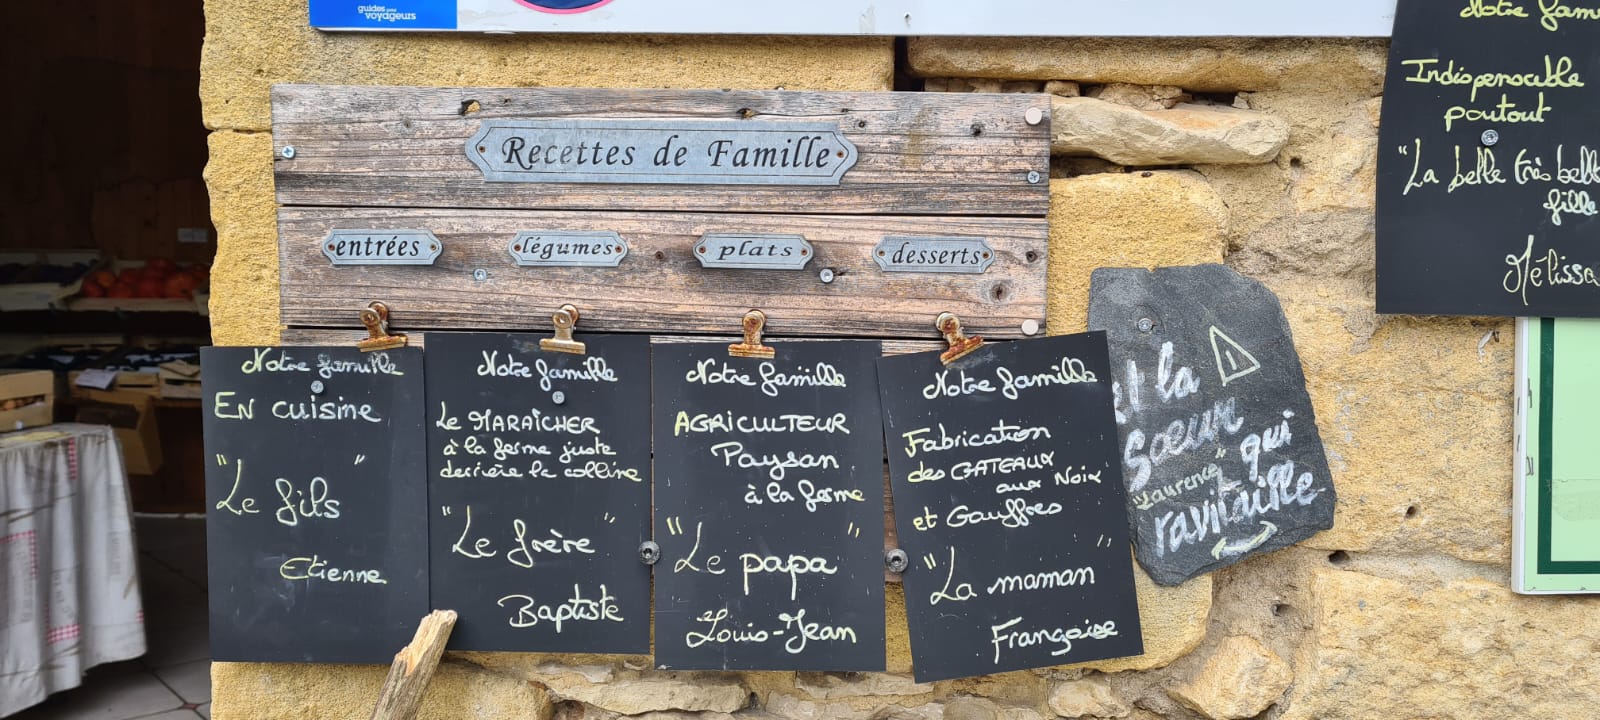 guides pour
voyageurs
Recettes de Famille
entrées
légumes
plats
desserts
Notre famille
EN CUISINE
"Le fils"
Etienne
Notre famille
Le MARAÎCHER
à la ferme juste
derrière la colline
"Le frère"
Baptiste
Notre famille
AGRICULTEUR
Paysan
à la ferme
"Le papa"
Louis-Jean
Notre famille
Fabrication
des GATEAUX
aux Noix
et Gauffres
"La maman"
Françoise
et la
Soeur
"Laurence" qui
ravitaille
Notre fam
Indispensable
partout
"La belle très belle
fille
Mélissa